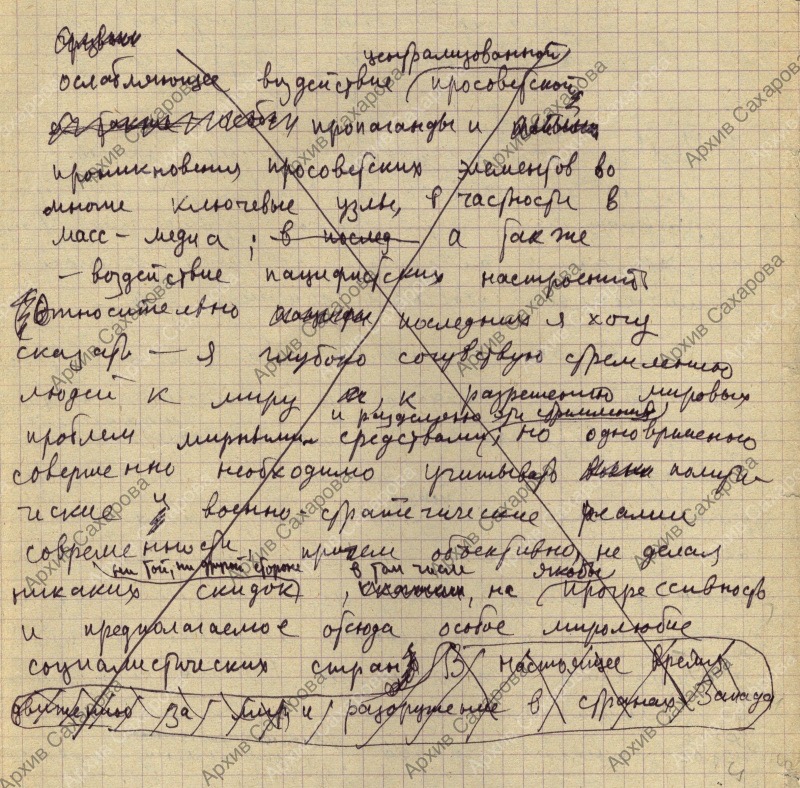 централизованной
ослабляющее воздействие просоветской
пропаганды и
проникновения просоветских элементов во
многие ключевые узлы, в частности в
масс-медиа; в послед а также
— воздействие пацифистских настроений
Относительно последних я хочу
сказать — я глубоко сочувствую стремлению
людей к миру, к разрешению мировых
и разделяю эти стремления
проблем мирными средствами; но одновременно
совершенно необходимо учитывать полити-
ческие и военно-стратегические реалии
современности, причем объективно, не делая
ни той, ни другой стороне в том числе якобы
никаких скидок, на прогрессивность
и предполагаемое отсюда особое миролюбие
социалистических стран В настоящее время
движению за мир и разоружение в странах Запада
Архив Сахарова